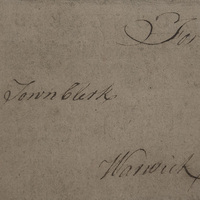 For
Town Clerk
Warwick